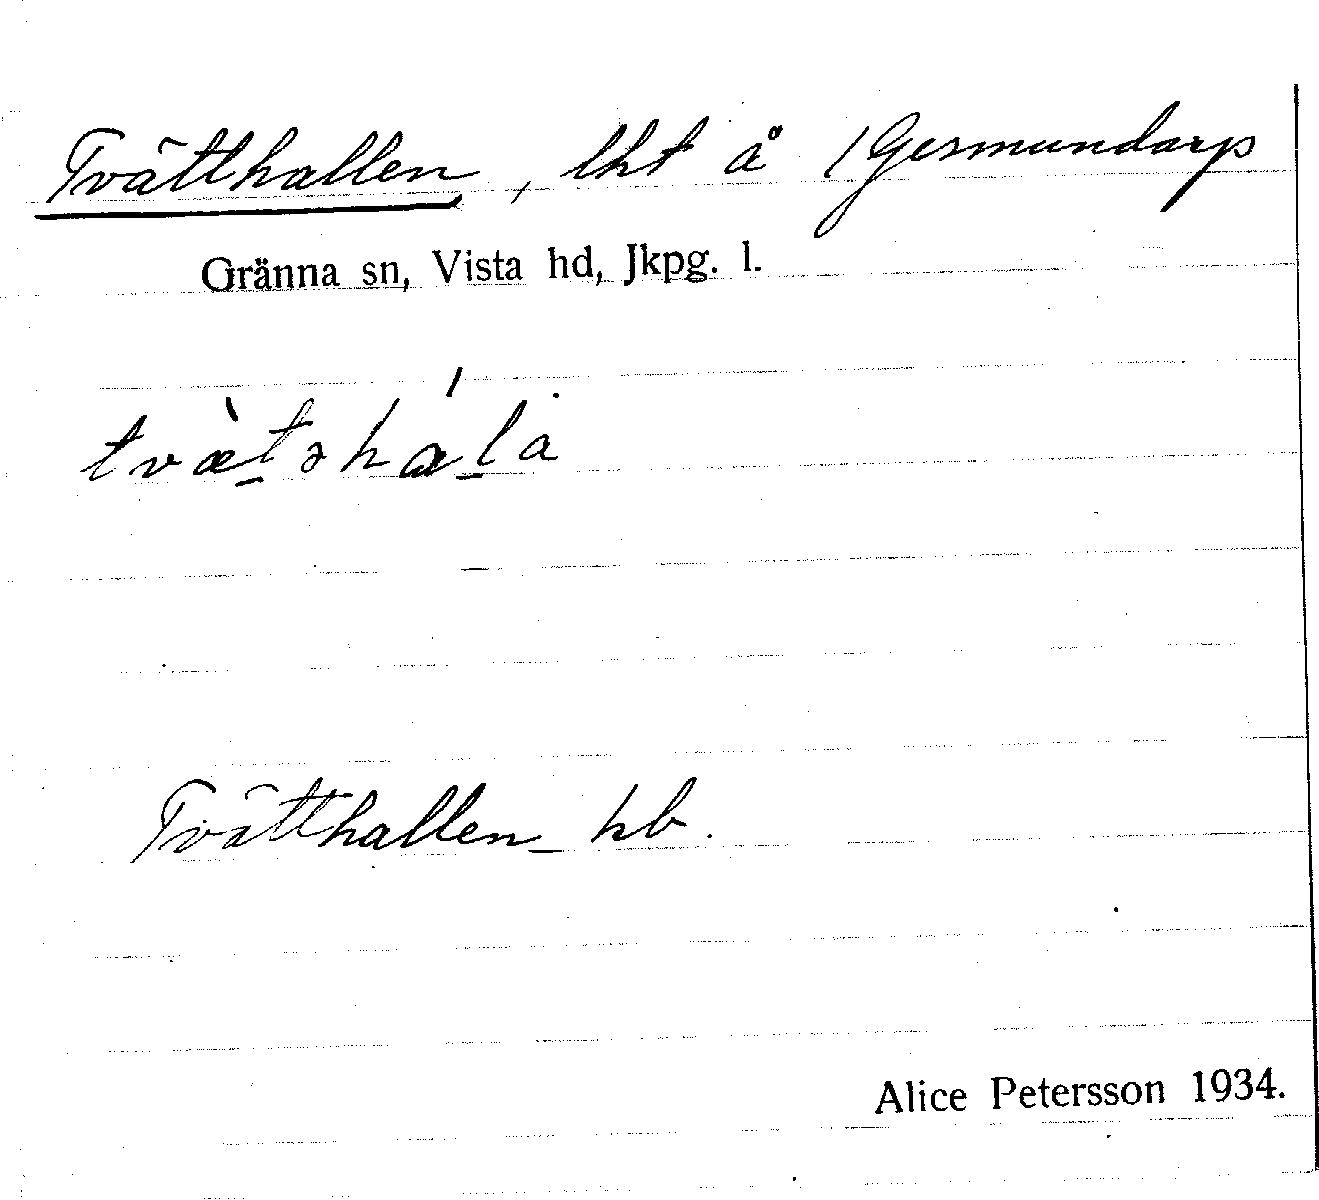 Tvätthallen, lht å / Gesmundarp
Gränna sn, Vista hd, Jkpg. l.
tvæ̀təhála
Tvätthallen hb.
Alice Petersson 1934.